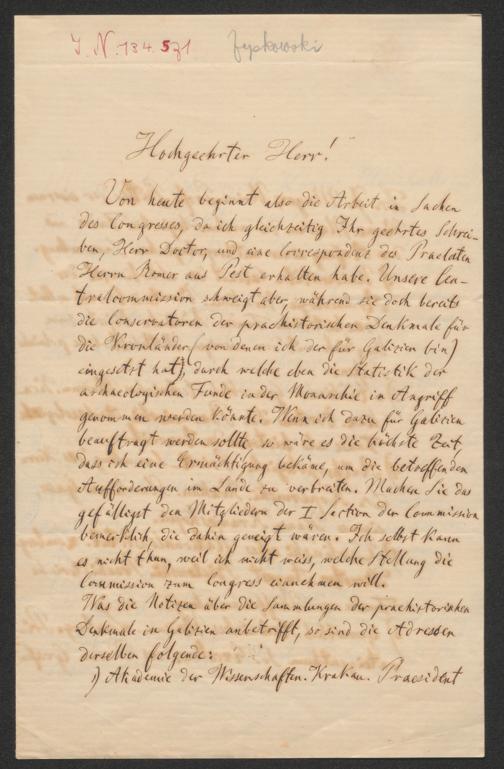 J. N. 134.521
Żypkowski
Hochgeehrter Herr!
Von heute beginnt also die Arbeit in Sachen
des Congresses, da ich gleichzeitig Ihr geehrtes Schrei-
ben, Herr Doctor, und eine Correspondenz des Praelaten
Herrn Romer aus Pest erhalten habe. Unsere Cen-
tralcommission schweigt aber, während sie doch bereits
die Conservatoren der praehistorischen Denkmale für
die Kronländer (von denen ich der für Galizien bin)
eingesetzt hat, durch welche eben die Statistik der
archaeologischen Funde in der Monarchie in Angriff
genommen werden könnte. Wenn ich dazu für Galizien
beauftragt werden sollte, so wäre es die höchste Zeit,
dass ich eine Ermächtigung bekäme, um die betreffenden
Aufforderungen im Lande zu verbreiten. Machen Sie das
gefälligst den Mitgliedern der I Section der Commission
bemerklich, die dahin geneigt wären. Ich selbst kann
es nicht thun, weil ich nicht weiss, welche Stellung die
Commission zum Congress einnehmen will.
Was die Notizen über die Sammlungen der praehistorischen
Denkmale in Galizien anbetrifft, so sind die Adressen
derselben folgende:
1) Akademie der Wissenschaften. Krakau. Praesident